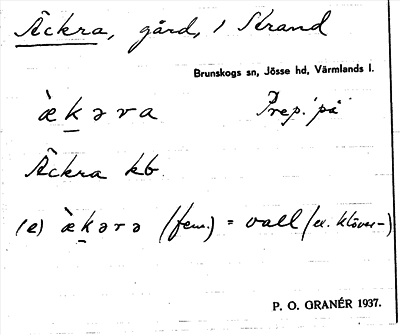 Äckra, gård, i Strand
Brunskogs sn, Jösse hd, Värmlands l.
æ̀k̠əra Prep. 'på'
Äckra kb.
(e) æ̀k̠ərə (fem.) = vall (ex. klöver-)
P. O. GRANÉR 1937.